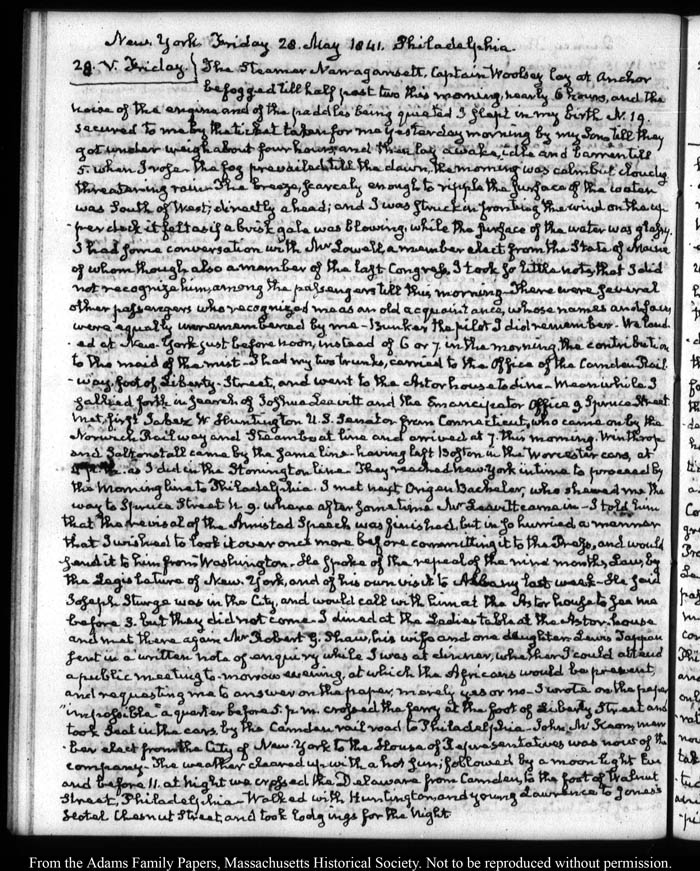 New-York Friday 28. May 1841. Philadelphia.
28. V. Friday. The Steamer Narragansett, Captain Woolsey lay at Anchor
befogged till half past two this morning, nearly 6 hours, and the
noise of the engine and of the paddles being quieted I slept in my birth N. 19.
secured to me by the ticket taken for me yesterday morning by my Son, till they
got under weigh about four hours, and then lay awake, idle and barren till
5. when I rose. the fog prevailed till the dawn, the morning was calm but cloudy
threatening rain. The breeze, scarcely enough to ripple the surface of the water
was South of West; directly ahead; and I was struck in fronting the wind on the up-
per deck it felt as if a brisk gale was blowing, while the surface of the water was glassy.
I had some conversation with Mr Lowell, a member elect from the State of Maine
of whom though also a member of the last Congress, I took so little note, that I did
not recognize him, among the passengers till this morning. There were several
other passengers who recognized me as an old acquaintance, whose names and faces
were equally unremembered by me - Bunker the pilot I did remember. We land-
ed at New-York just before noon, instead of 6 or 7. in the morning, the contribution
to the maid of the mist - I had my two trunks, carried to the Office of the Camden Rail-
way, foot of Liberty-Street, and went to the Astor house to dine - Meanwhile I
sallied forth in search of Joshua Leavitt and the Emancipator Office 9 Spruce Street
met first Jabez W Huntington U.S. Senator from Connecticut, who came on by the
Norwich Railway and Steamboat line and arrived at 7. this morning. Winthrop
and Saltonstall came by the same line - having left Boston in the Worcester cars, at
as I did in the Stonington line. They reached New York in time to proceed by
the Morning line to Philadelphia. I met next Origen Bacheler, who shewed me the
way to Spruce Street N. 9. where after some time Mr Leavitt came in - I told him
that the revisal of the Amistad Speech was finished, but in so hurried a manner
that I wished to look it over once more before committing it to the Press, and would
send it to him from Washington. He spoke of the repeal of the nine months Law, by
the Legislature of New-York, and of his own visit to Albany last week - He said
Joseph Sturge was in the City, and would call with him at the Astor house to see me
before 3. but they did not come - I dined at the Ladies table at the Astor-house
and met there again Mr Robert G. Shaw, his wife and one daughter. Lewis Tappan
sent in a written note of enquiry while I was at dinner, whether I could attend
a public meeting to-morrow evening, at which the Africans would be present,
and requesting me to answer on the paper, merely yes or no - I wrote on the paper
"impossible" a quarter before 5. p.m. crossed the ferry at the foot of Liberty Street and
took Seat in the cars, by the Camden rail road to Philadelphia - John McKeon, mem-
ber elect from the City of New-York to the House of Representatives was now of the
company. The weather cleared up with a hot sun; followed by a moon light Eve
and before 11. at night we crossed the Delaware from Camden, to the foot of Walnut
Street, Philadelphia - Walked with Huntington and young Lawrence to Jones's
Hotel Chesnut Street, and took lodgings for the Night
From the Adams Family Papers, Massachusetts Historical Society. Not to be reproduced without permission.